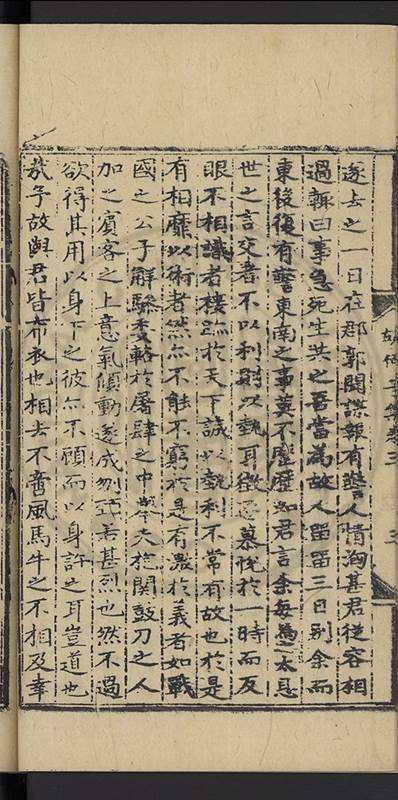 遂去之一日在郡郭聞諜報有警人情洶甚君從容相
過輙曰事急死生共之吾當為故人留留三日别余而
東後復有警東南之事莫不歷歷如君言余每為之太息
世之言交者不以利則以埶耳徼逐慕悅於一時而反
眼不相識者棲跡於天下誠以埶利不常有故也於是
有相靡以術者然亦不能不窮於是有激於義者如戰
國之公子解驂委輅於屠肆之中舉夫抱關鼓刀之人
加之賓客之上意氣傾動遂成刎
若甚烈也然不過
欲得其用以身下之彼亦不顧而以身許之耳豈道也
哉予故與君皆布衣也相去不啻風馬牛之不相及幸
三